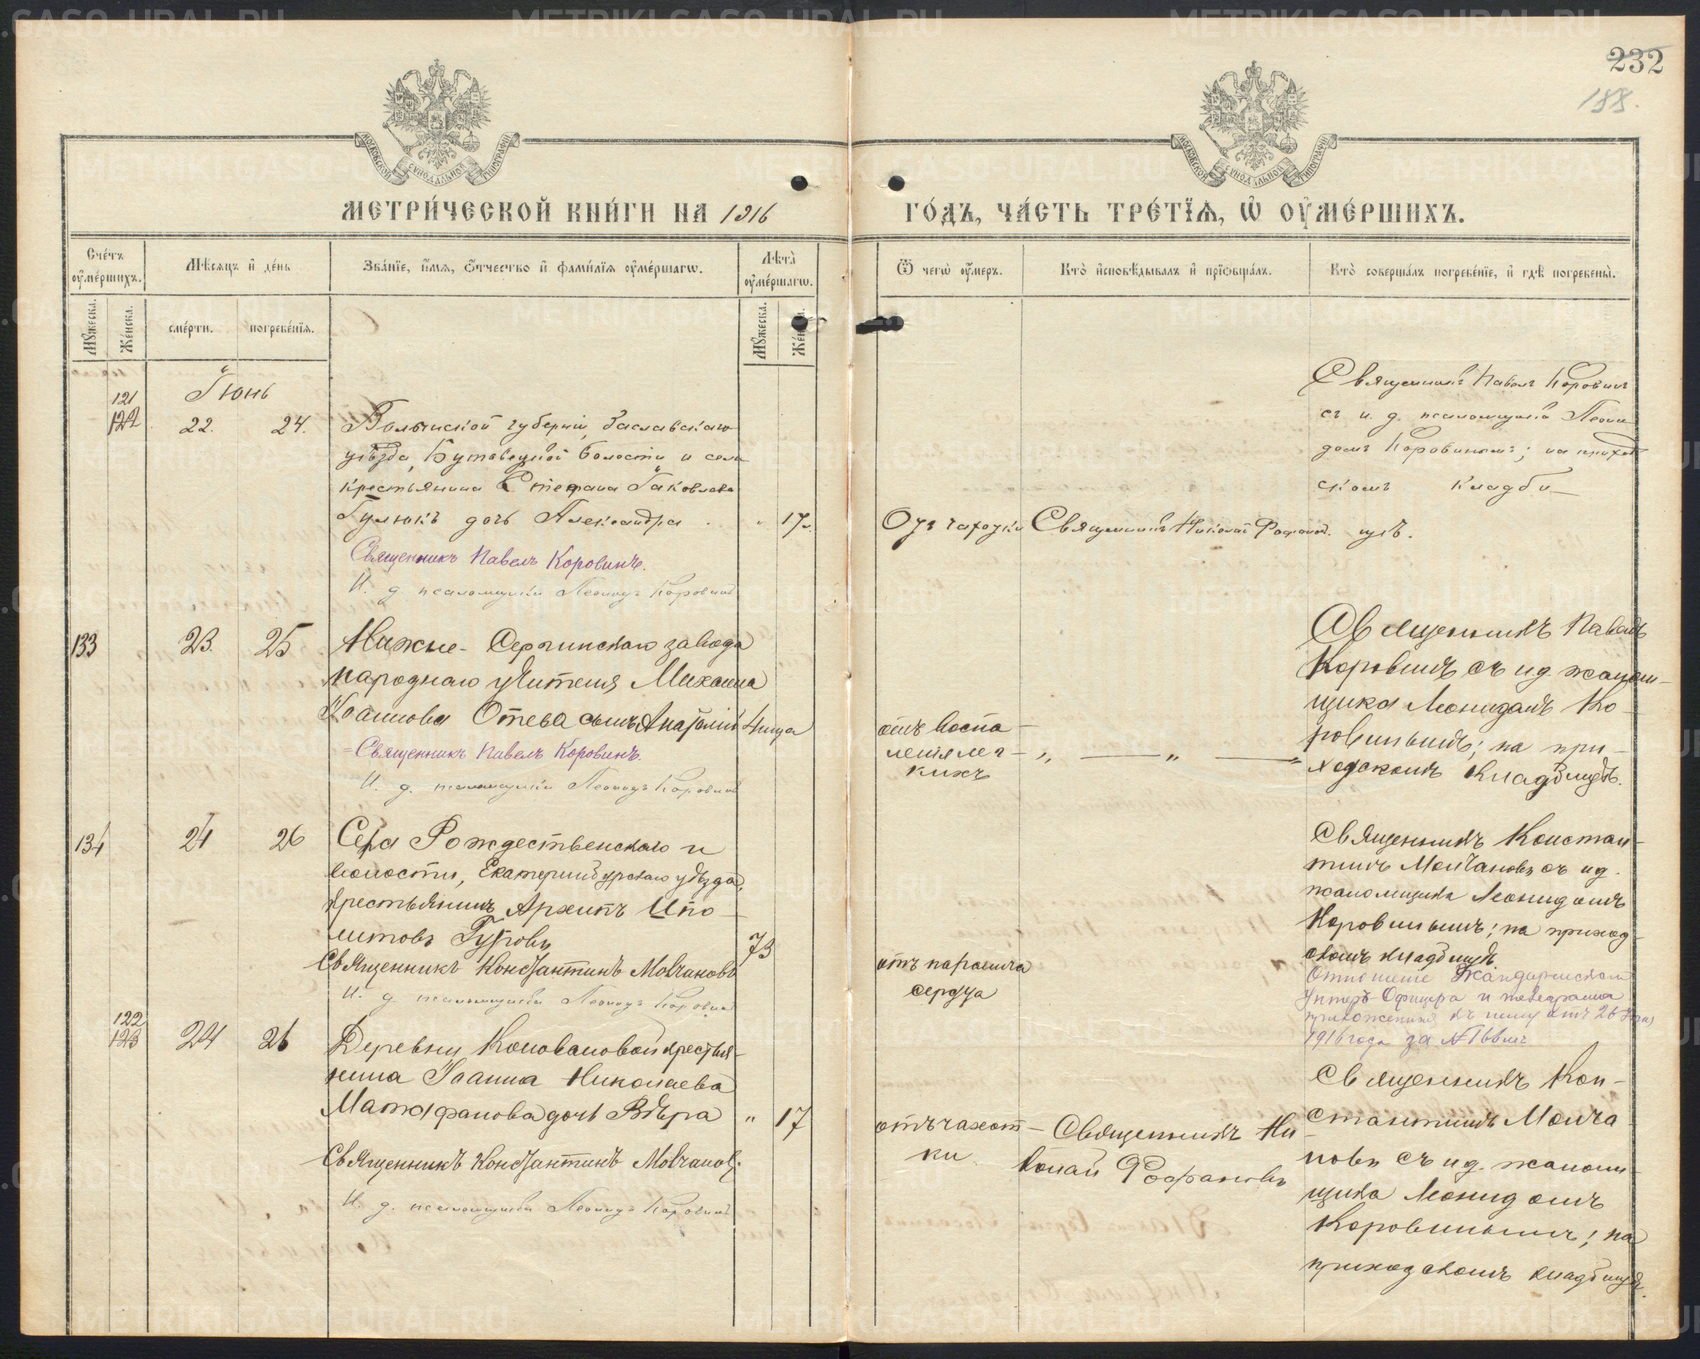 232
188.
МЕТРИ́ЧЕСКОЙ КНИ́ГИ НА 1916
ГО́ДЪ, ЧА́СТЬ ТРЕ́ТЇѦ, Ѡ҆ ОУ҆МЕ́РШИХЪ.
Сче́тъ оу҆ме́ршихъ.
Мѣ́сѧцъ и҆ де́нь
Зва́нїе, и҆́мѧ, ѻ҆́тчество и҆ фами́лїѧ оу҆ме́ршагѡ.
Лѣ́та оу҆ме́ршагѡ.
Ѿ чегѡ̀ оу҆́меръ.
Кто̀ и҆сповѣ́дывалъ и҆ прїѡбща́лъ.
Кто̀ соверша́лъ погребе́нїе, и҆ гдѣ̀ погребены̀.
Мꙋ́жеска.
Же́нска.
сме́рти.
погребе́нїѧ.
Мꙋ́жеска.
Же́нска.
Іюнь
121
122
22. 24.
Волынской губерніи, Заславскаго
уѣзда, Волости и села
крестьянина Стефана Іаковлева
дочь Александра " 17
Священникъ Павелъ Коровинъ.
И. д. псаломщика Леонидъ Коровинъ
Отъ чахотки
Священникъ Николай
Священникъ Павелъ Коровинъ
съ и. д. псаломщика Леони
домъ Коровинымъ; на приход
скомъ кладби
щѣ.
133 23. 25
Нижне-Сергинскаго завода
народнаго учителя Михаила
Іоаннова сынъ Анатолій
Священникъ Павелъ Коровинъ.
И. д. псаломщика Леонидъ Коровинъ
отъ воспа
ленія лег-
кихъ
" — " — "
Священникъ Павелъ
Коровинъ съ и д. псалом-
щика Леонидомъ Ко-
ровинымъ; на при-
ходскомъ кладбищѣ.
134 24 26
Села Рождественскаго и
волости, Екатеринбургскаго уѣзда,
крестьянинъ Архипъ Ипо-
литовъ 73
Священникъ Константинъ Молчановъ
И. д. псаломщика Леонидъ Коровинъ
отъ паралича
сердца
Священникъ Констан-
тинъ Молчановъ съ и д.
псаломщика Леонидомъ
Коровинымъ; на приход-
скомъ кладбищѣ
Отношеніе Жандармскаго
Унтеръ-Офицера и телеграмма
приложенная къ нему отъ 26 Іюня
1916 года за №
122
123
24 26
Деревни Коноваловой крестья-
нина Іоанна Николаева
дочь Вѣра " 17
Священникъ Константинъ Молчановъ.
И. д. псаломщика Леонидъ Коровинъ
отъ чахот-
ки.
Священникъ Ни-
колай
Священникъ Кон-
стантинъ Молча-
новъ съ и д. псалом-
щика Леонидомъ
Коровинымъ; на
приходскомъ кладбищѣ.